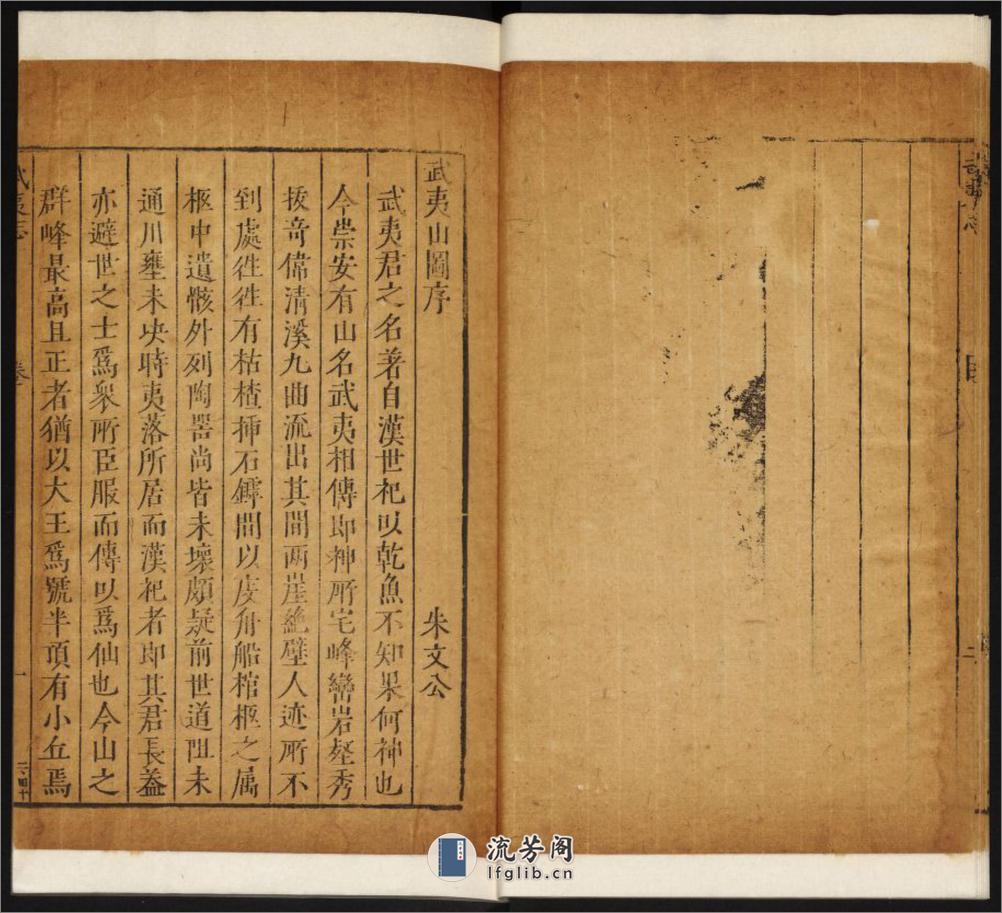 武夷志
目
二
武夷山圖序
朱文公
武夷君之名著自漢世祀以乾魚不知果何神也
今崇安有山名武夷相傳即神所宅峰巒岩壑秀
拔奇偉清溪九曲流出其間兩崖絶壁人迹所不
到處往往有枯楂揷石罅間以庋舟船棺柩之属
柩中遺骸外列陶噐尚皆未壞頗疑前世道阻未
通川壅未决時夷落所居而漢祀者即其君長葢
亦避世之士爲衆所臣服而傳以爲仙也今山之
群峰最高且正者猶以大王爲號半頂有小丘焉
武夷志
卷
一
流芳阁
lfglib.cn